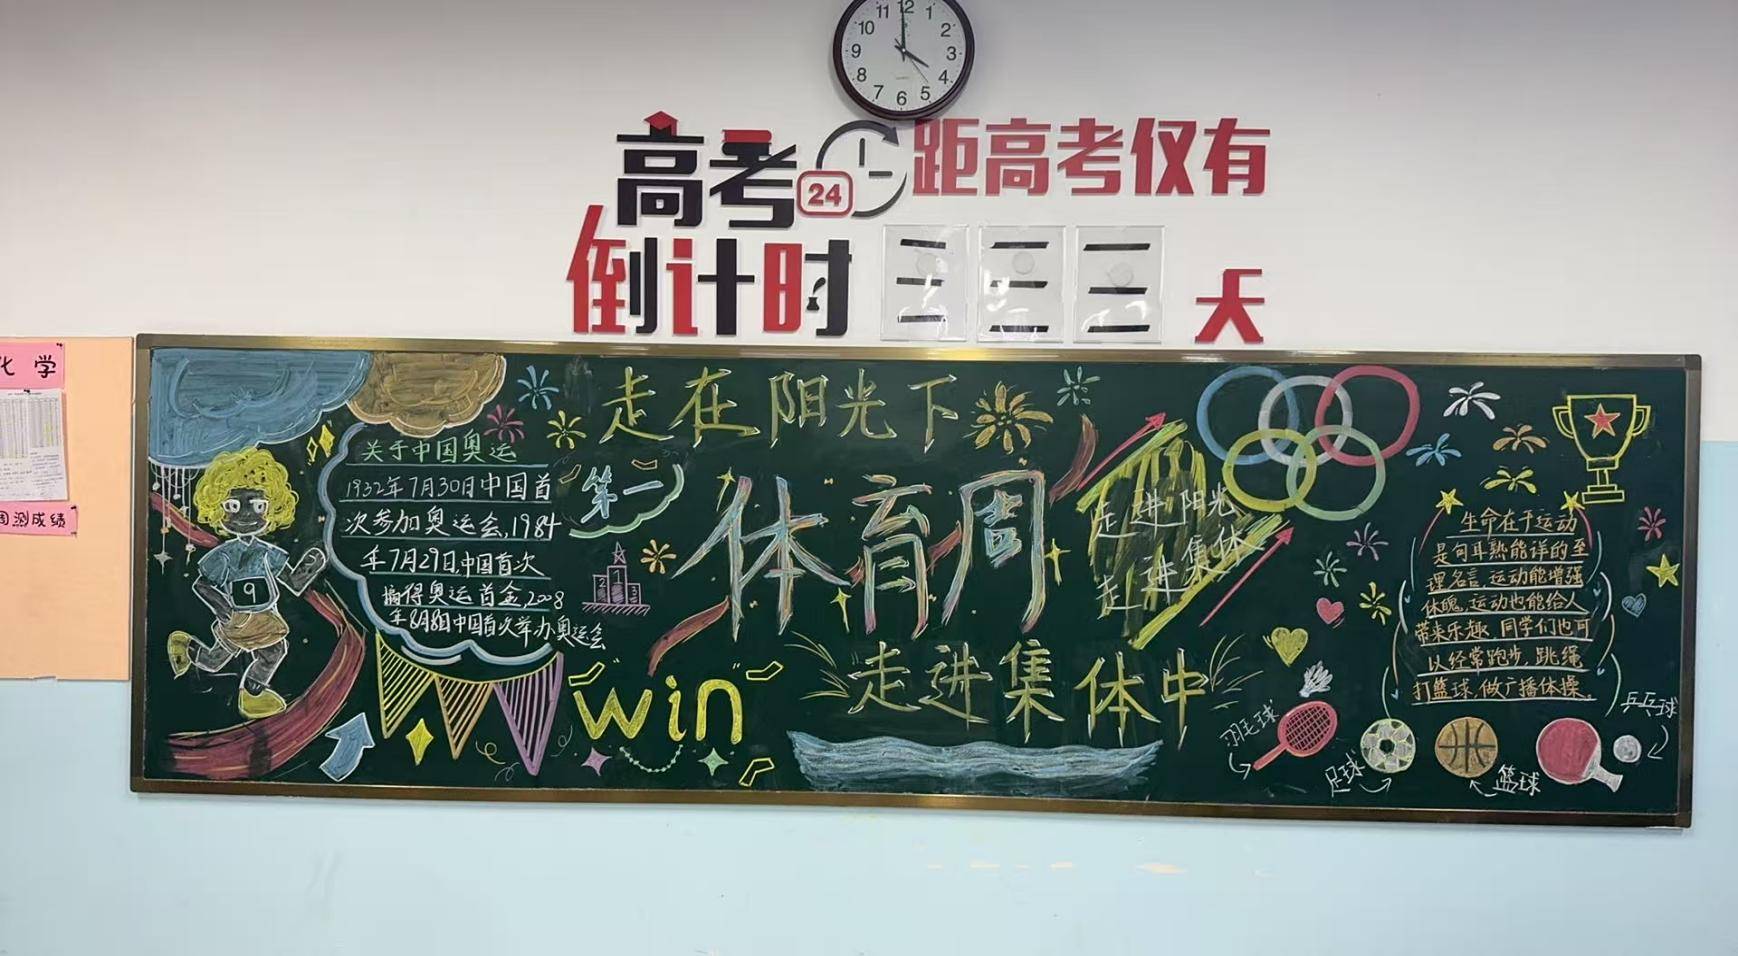 11 12 1
10 2
9 3
8 4
7 6 5
高考 24 距高考仅有
倒计时 三三三 天
化学
周测成绩
走在阳光下
关于中国奥运
1932年7月30日中国首
次参加奥运会,1984
年7月29日,中国首次
摘得奥运首金,2008
年8月8日中国首次举办奥运会
9
第一
体育周
2 1 3
走进阳光
走进集体
走进集体中
"win"
生命在于运动
是向耳熟能详的至
理名言,运动能增强
体魄,运动也能给人
带来乐趣,同学们也可
以经常跑步,跳绳
打篮球,做广播体操。
羽毛球
足球
篮球
乒乓球